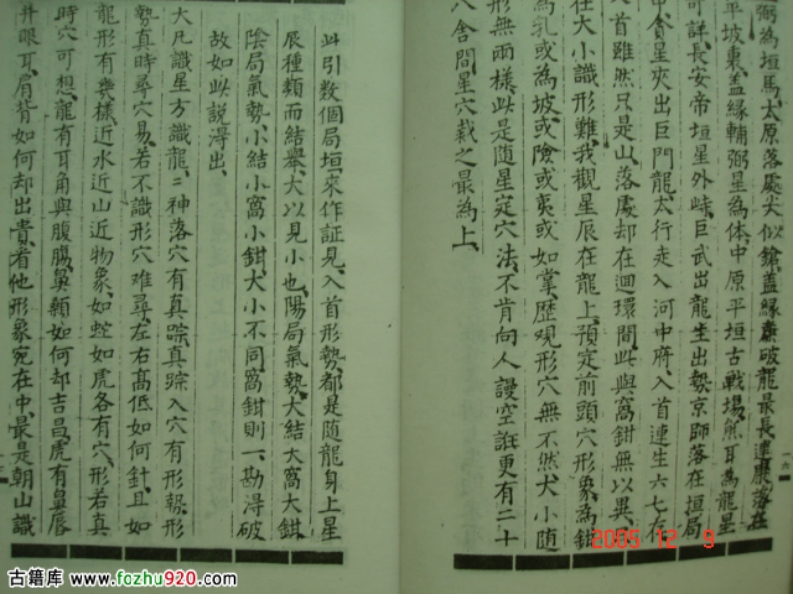 弼為垣馬太原落處尖似鎗蓋緣廉破龍最長連廉落在
平坡裏蓋緣輔弼星為体中原平垣古戰場熊耳為龍星
可詳長安帝垣星外峙巨武出龍生出勢京師落在垣局
中貪星夾出巨門龍太行走入河中府入首連生六七存
入首雖然只是山落處却在迴環間此與窩鉗無以異
在大小識形難我觀星辰在龍上預定前頭穴形象為鉗
為乳或為坡或險或夷或如掌歷观形穴無不然大小随
形無兩樣此是随星定穴法不肯向人謾空誑更有二十
八舍間星穴裁之最為上
此引数個局垣來作証見入首形勢都是随龍身上星
辰種類而結舉大以見小也陽局氣勢大結大窩大鉗
陰局氣勢小結小窩小鉗大小不同窩鉗則一勘得破
故如此説得出
大凡識星方識龍二神落穴有真踪真踪入穴有形勢形
勢真時尋穴易若不識形穴难尋左右高低如何針且如
龍形有幾樣近水近山近物象如蛇如虎各有穴形若真
時穴可想龍有耳角與腹腸鼻顙如何却吉昌虎有鼻唇
并眼耳肩背如何却出貴看他形象宛在中最是朝山識
一六
2005 12 9
古籍库 www.fozhu920.com